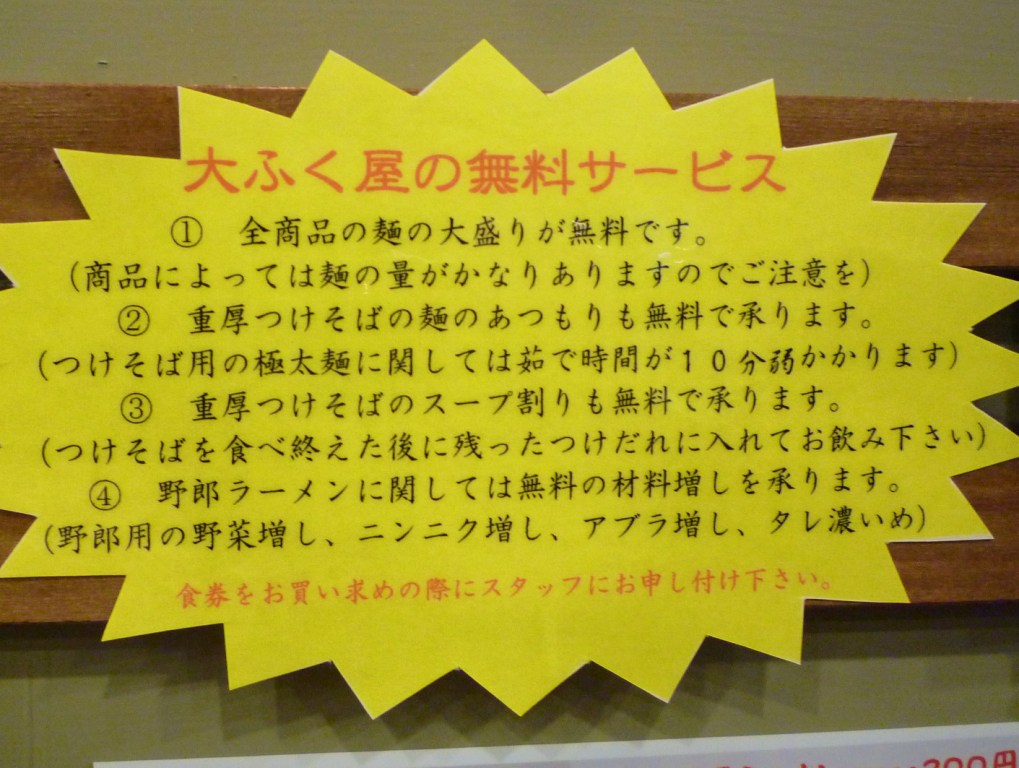 大ふく屋の無料サービス
① 全商品の麺の大盛りが無料です。
(商品によっては麺の量がかなりありますのでご注意を)
② 重厚つけそばの麺のあつもりも無料で承ります。
(つけそば用の極太麺に関しては茹で時間が10分弱かかります)
③ 重厚つけそばのスープ割りも無料で承ります。
(つけそばを食べ終えた後に残ったつけだれに入れてお飲み下さい)
④ 野郎ラーメンに関しては無料の材料増しを承ります。
(野郎用の野菜増し、ニンニク増し、アブラ増し、タレ濃いめ)
食券をお買い求めの際にスタッフにお申し付け下さい。